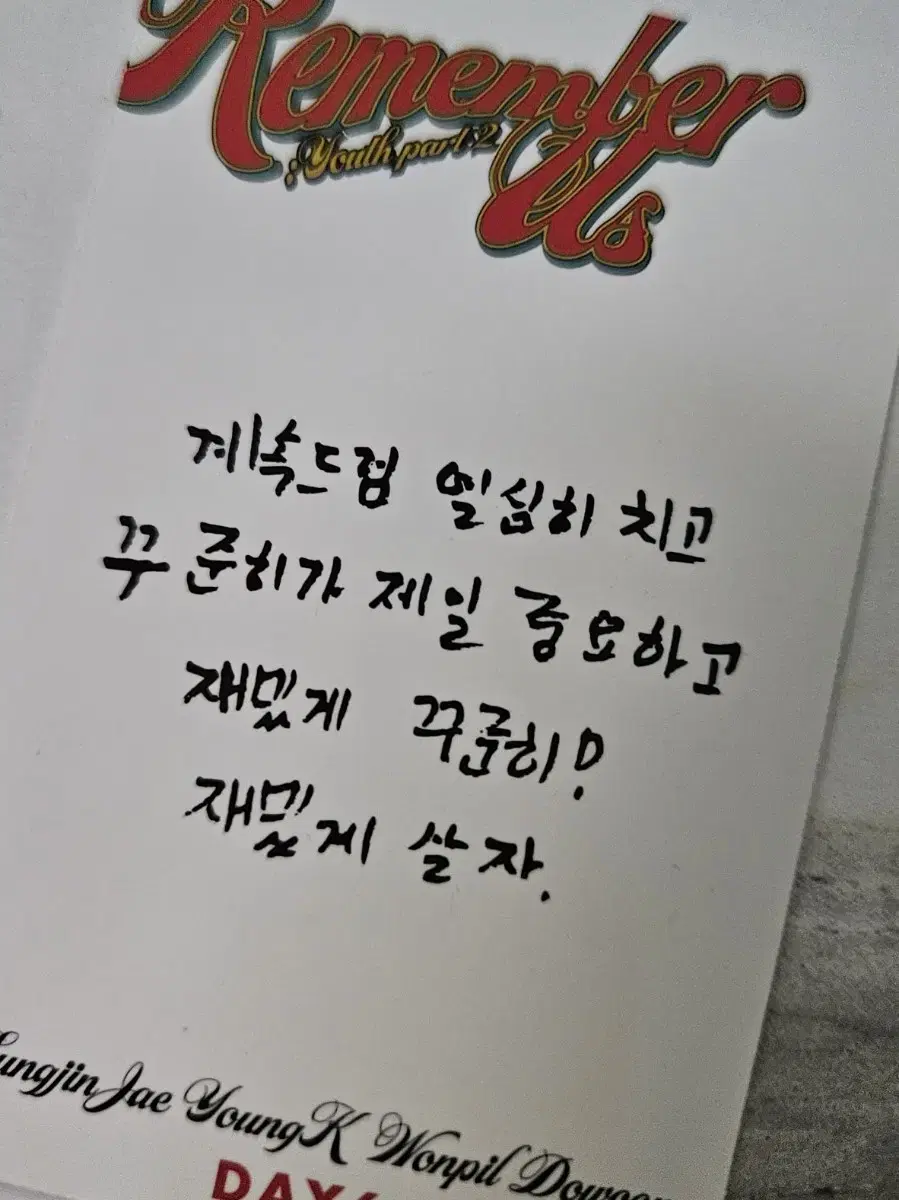 Remember
Us
:Youth part 2
계속드럼 열심히 치고
꾸준히가 제일 중요하고
재밌게 꾸준히!
재밌게 살자.
Sungjin Jae YoungK Wonpil Dowoon
DAY6